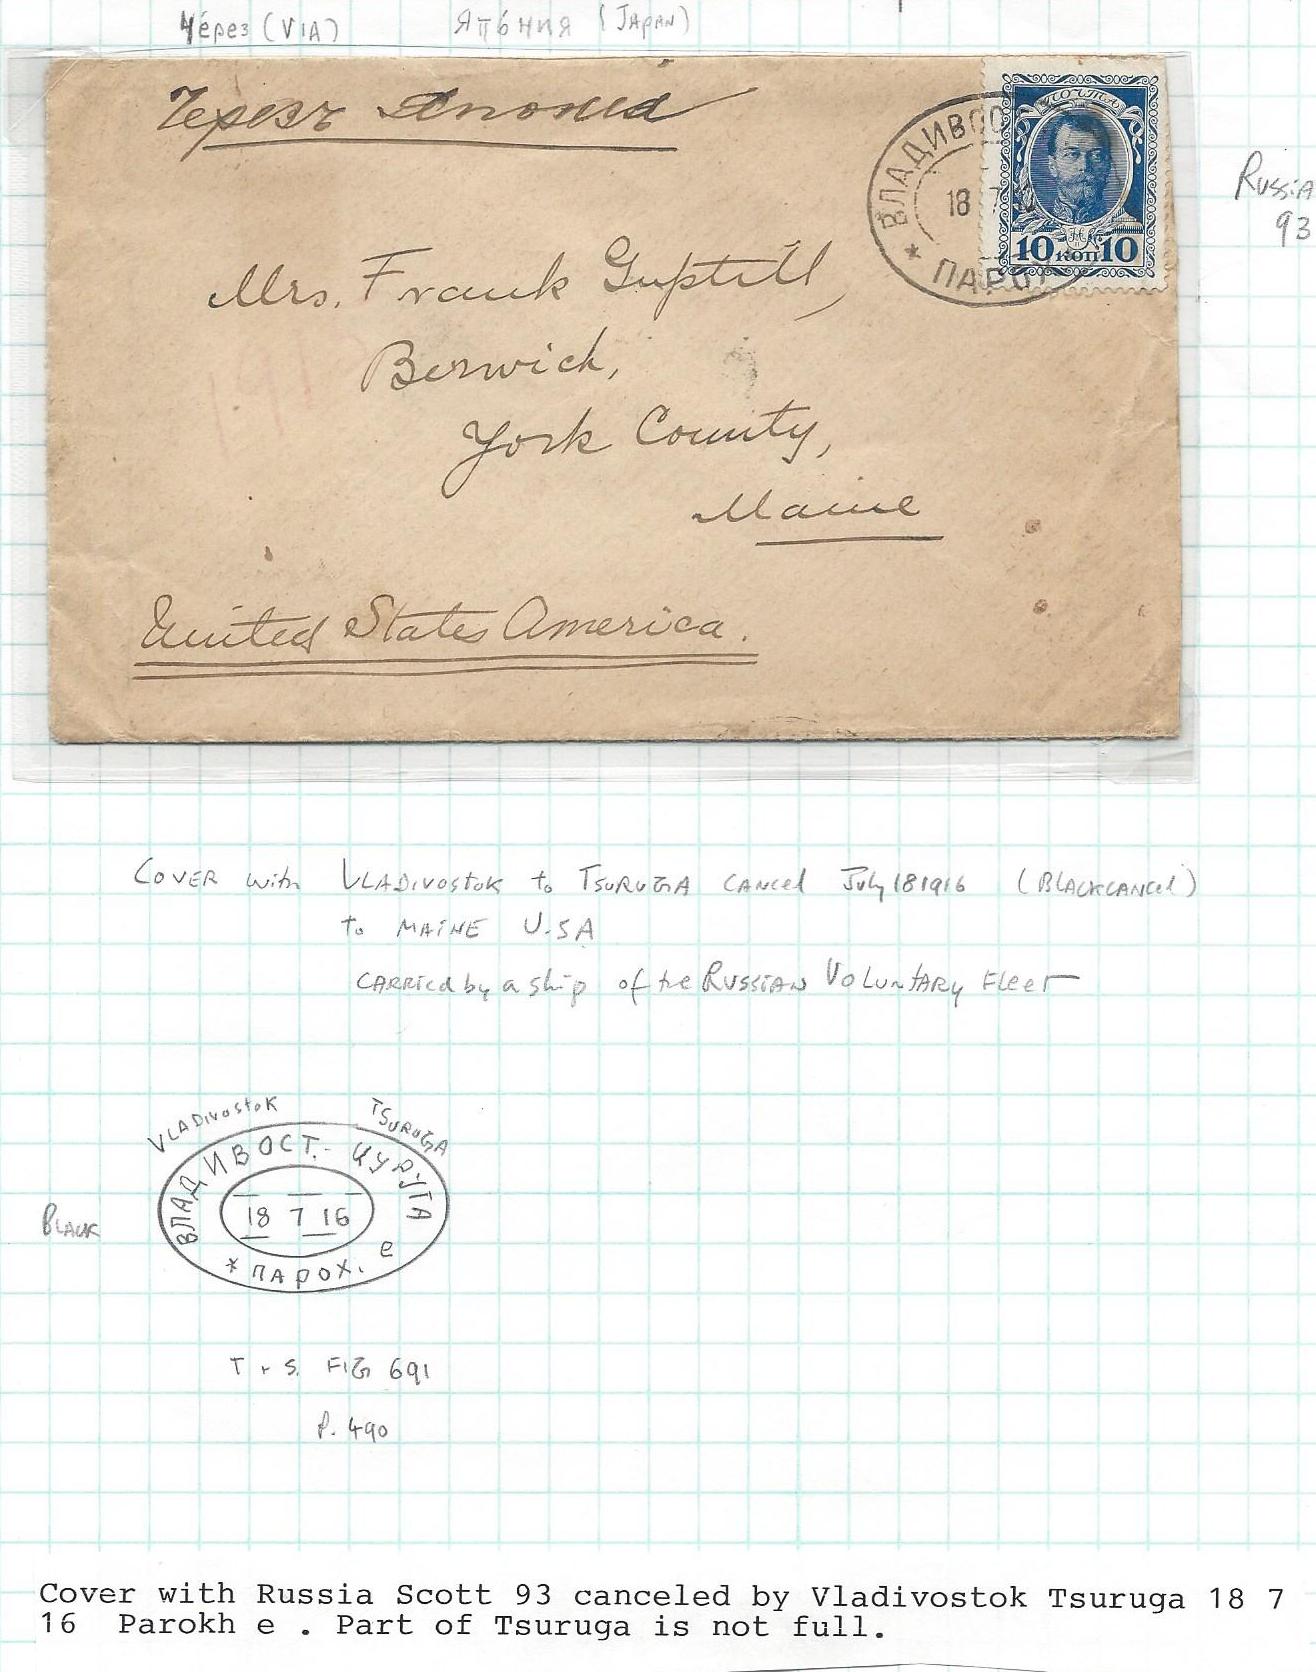 Че́рез (VIA) Япо́ния (JAPAN)
Через Японiя
ВЛАДИВОС
18 7
* ПАРОХ
ПОЧТА
10 коп 10
RUSSIA
93
Mrs. Frank Guptill,
Berwick,
York County,
Maine
United States America.
COVER with VLADIVOSTOK to TSURUGA CANCEL July 18 1916 (BLACK CANCEL)
to MAINE U.S.A
CARRIED by a ship of the RUSSIAN VOLUNTARY FLEET
VLADIVOSTOK TSURUGA
ВЛАДИВОСТ.- ЦУРУГА
BLACK
18 7 16
* ПАРОХ. е
T + S. FIG 691
P. 490
Cover with Russia Scott 93 canceled by Vladivostok Tsuruga 18 7
16 Parokh e . Part of Tsuruga is not full.